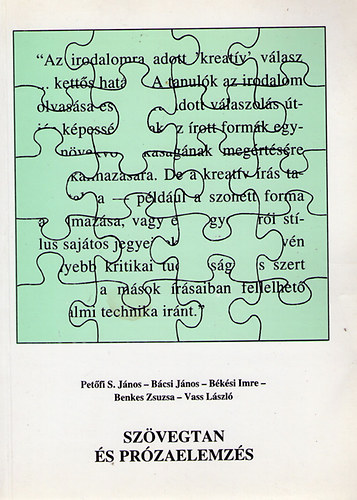 “Az irodalomra adott 'kreatív' válasz
... kettős hatá A tanulók az irodalom
olvasása és dott válaszolás út-
képessé ak z írott formák egy-
növekvő kaságának megértésére
kalmazására. De a kreatív írás ta-
a — például a szonett forma
a lmazása, vagy e gy ról stí-
lus sajátos jegyei k vén
yebb kritikai tud ság s szert
a mások írásaiban fellelhető
almi technika iránt.”
Petőfi S. János – Bácsi János – Békési Imre –
Benkes Zsuzsa – Vass László
SZÖVEGTAN
ÉS PRÓZAELEMZÉS